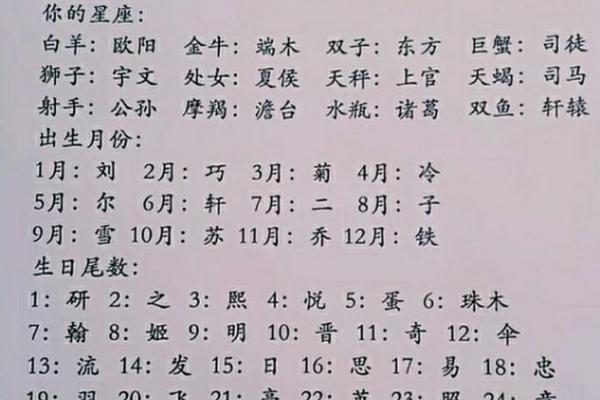 你的星座：
白羊：欧阳 金牛：端木 双子：东方 巨蟹：司徒
狮子：宇文 处女：夏侯 天秤：上官 天蝎：司马
射手：公孙 摩羯：澹台 水瓶：诸葛 双鱼：轩辕
出生月份：
1月：刘 2月：巧 3月：菊 4月：冷
5月：尔 6月：轩 7月：二 8月：子
9月：雪 10月：苏 11月：乔 12月：铁
生日尾数：
1：研 2：之 3：熙 4：悦 5：蛋 6：珠木
7：翰 8：姬 9：明 10：晋 11：奇 12：伞
13：流 14：发 15：日 16：思 17：易 18：忠
19： 20：飞 21：亮 22：英 23：照 24：